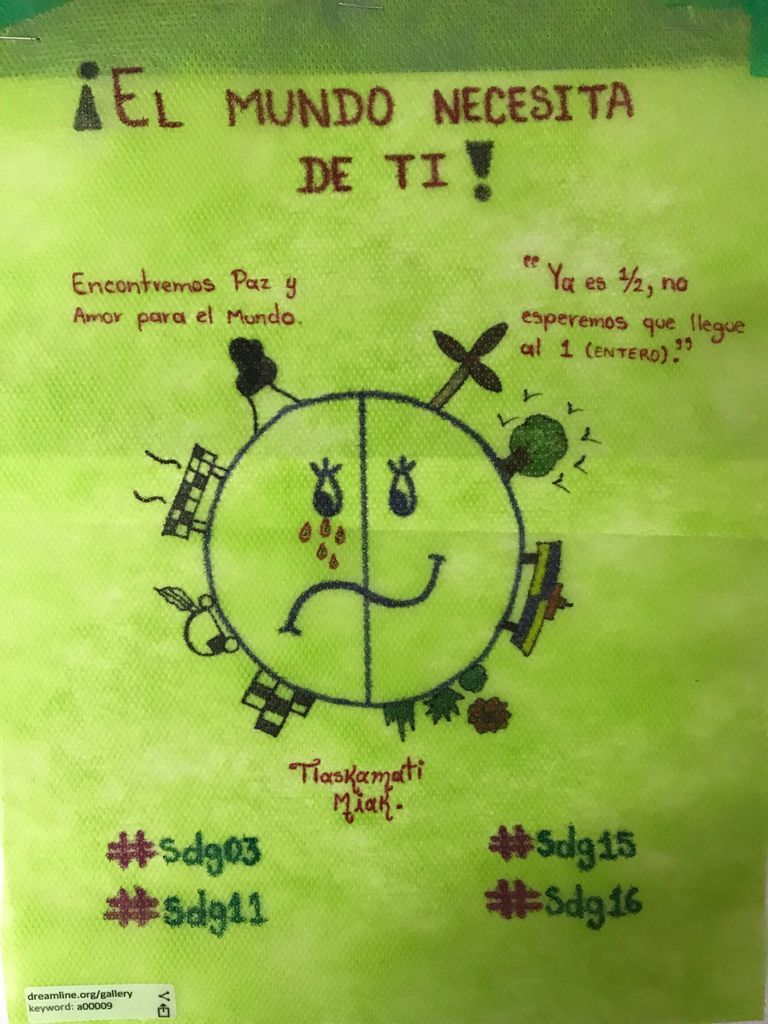 ¡EL MUNDO NECESITA
DE TI!
Encontremos Paz y
Amor para el Mundo.
"Ya es ½, no
esperemos que llegue
al 1 (ENTERO)."
Tlaskamati
Miak.
#Sdg03
#Sdg11
#Sdg15
#Sdg16
dreamline.org/gallery
keyword: a00009